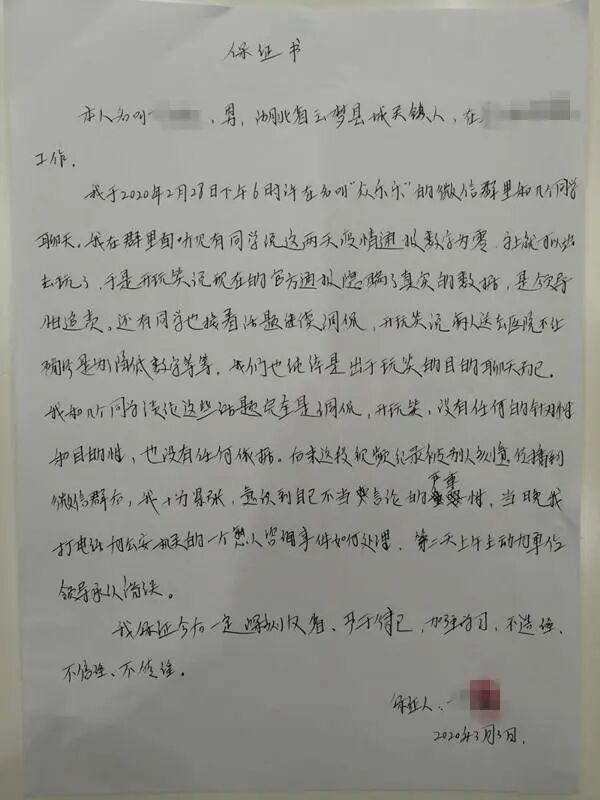 保证书
本人名叫 ，男，湖北省云梦县城关镇人，在
工作。
我于2020年2月28日下午6时许在名叫“众乐乐”的微信群里和几个同学
聊天。我在群里面听见有同学说这两天疫情通报数字为零，马上就可以出
去玩了，于是开玩笑说现在的官方通报隐瞒了真实的数据，是领导
怕追责。还有同学也接着话题继续调侃，开玩笑说病人送去医院不让
确诊是为降低数字等等。我们也纯粹是出于玩笑的目的聊天而已。
我和几个同学谈论这些话题完全是调侃，开玩笑，没有任何的针对性
和目的性，也没有任何依据。后来这段视频纪录被别人刻意传播到
微信群后，我十分紧张，意识到自己不当言论的严重性，当晚我
打电话向公安机关的一个熟人咨询事件如何处理，第二天上午主动向单位
领导承认错误。
我保证今后一定深刻反省、严于律己，加强学习，不造谣、
不信谣、不传谣。
保证人：
2020年3月3日.